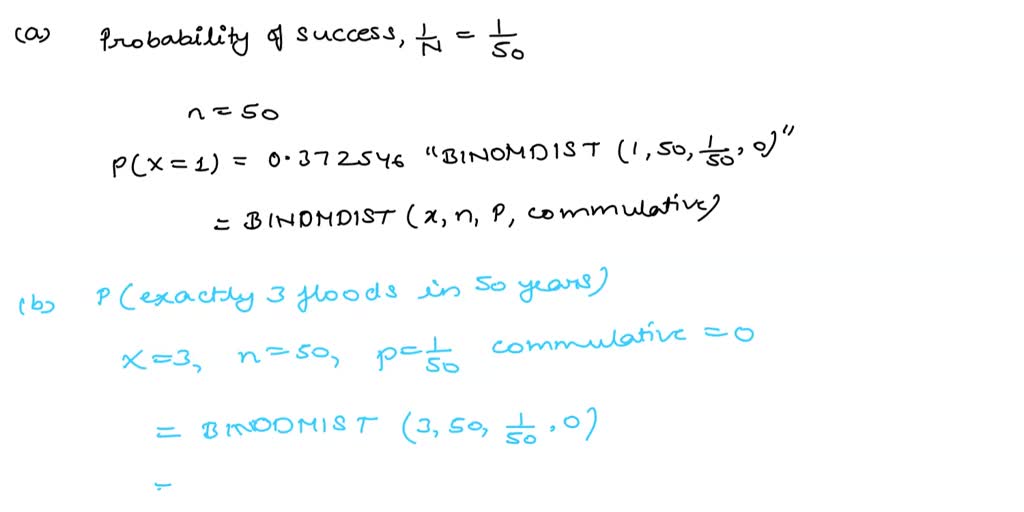 (a) Probability of success, 1/N = 1/50
n = 50
P(X=1) = 0.372546 "BINOMDIST (1, 50, 1/50, 0)"
= BINOMDIST (x, n, P, commulative)
(b) P(exactly 3 floods in 50 years)
x=3, n=50, p=1/50 commulative = 0
= BINODMIST (3, 50, 1/50, 0)
=